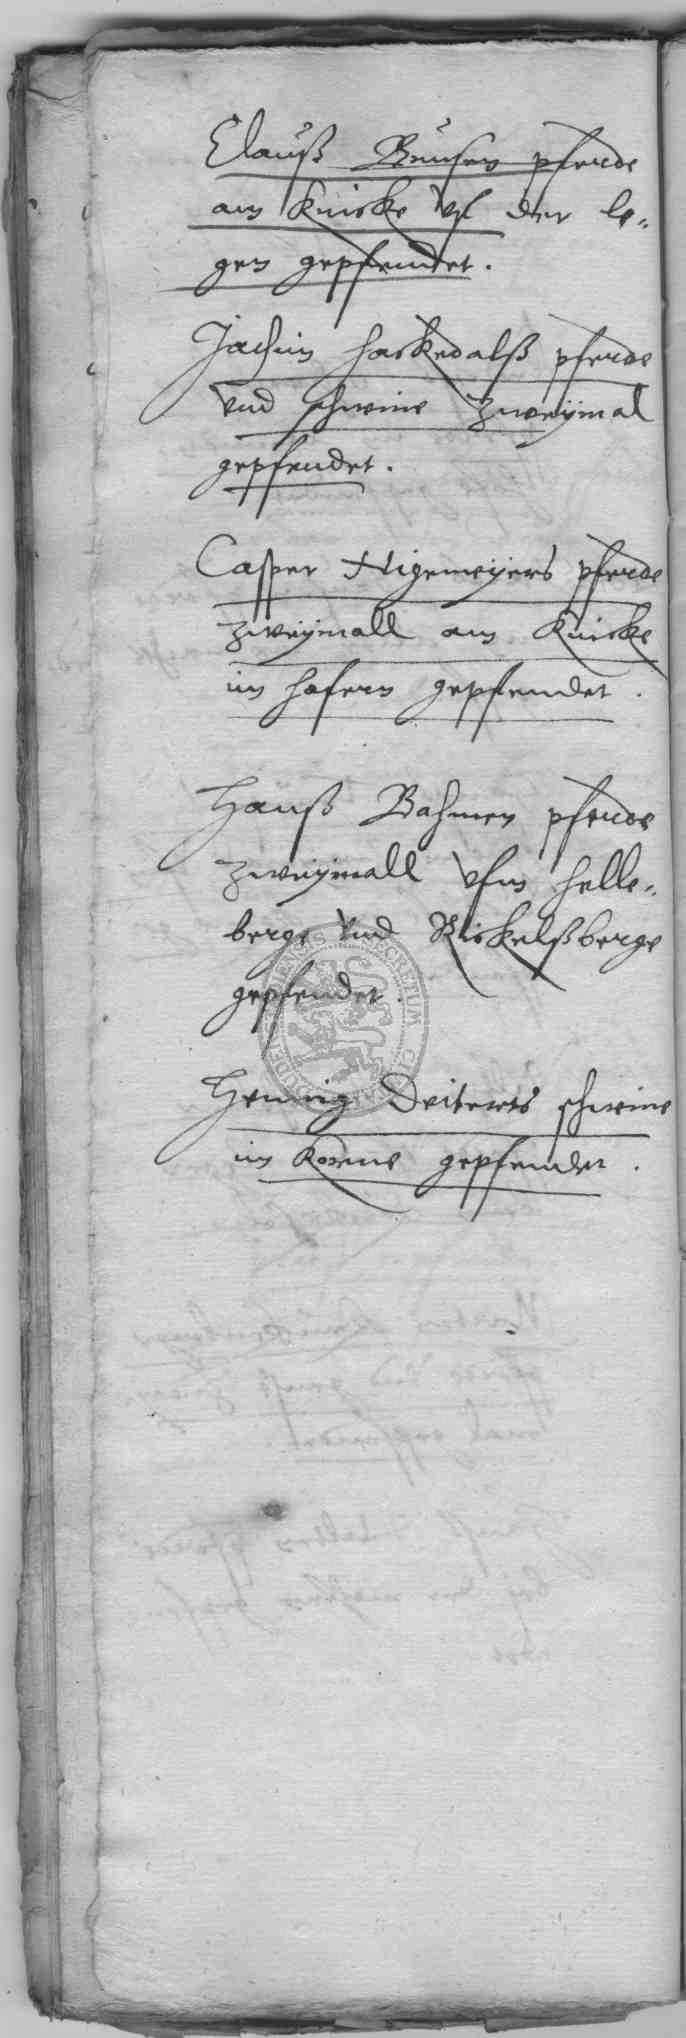 Clauß Brunsen pferde
am Knicke vf der le-
gen gepfendet.
Jachim Haskedalß pferde
vnd schweine zweymal
gepfendet.
Casper Nigemeyers pferde
zweymall am Knicke
im hafern gepfendet.
Hanß Bahmen pferde
zweymall vfm helle-
berge vnd Rickelßberge
gepfendet.
Henning Deiterts schweine
im Korne gepfendet.